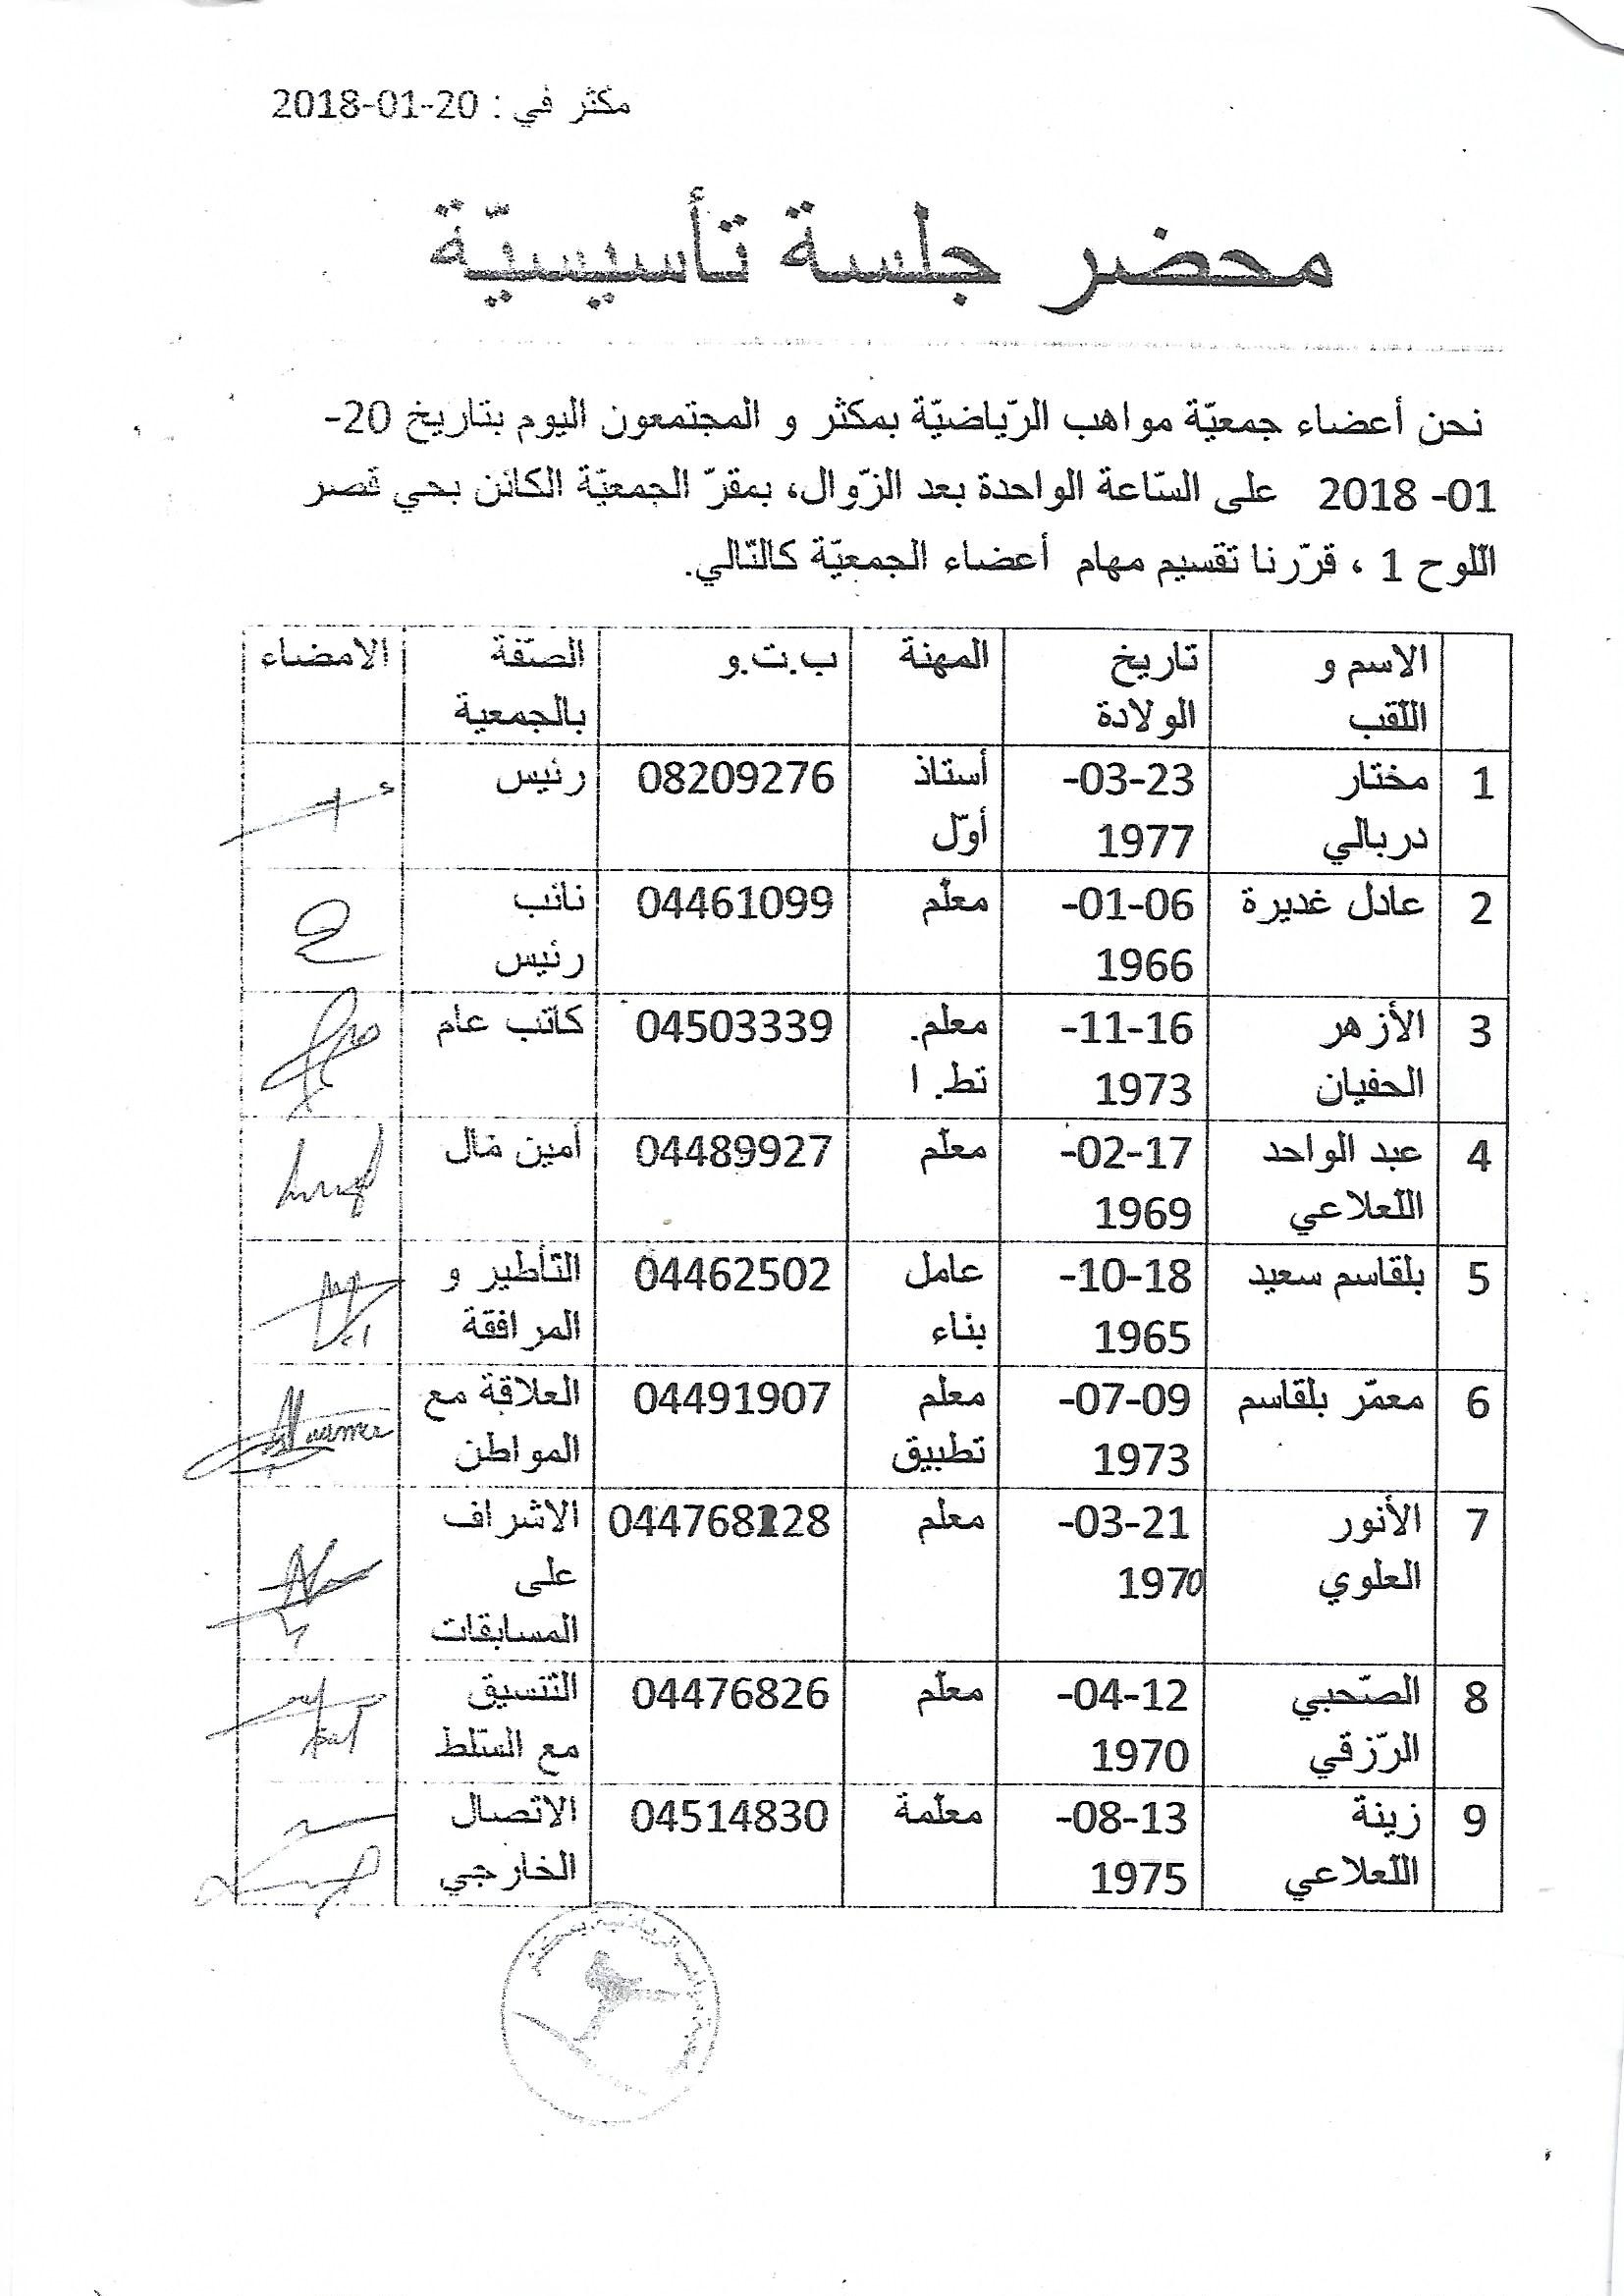 مكثر في : 20-01-2018
محضر جلسة تأسيسيّة
نحن أعضاء جمعيّة مواهب الرّياضيّة بمكثر و المجتمعون اليوم بتاريخ 20-
01- 2018 على السّاعة الواحدة بعد الزّوال، بمقرّ الجمعيّة الكائن بحي قصر
اللّوح 1 ، قرّرنا تقسيم مهام أعضاء الجمعيّة كالتّالي.
الاسم و اللّقب تاريخ الولادة المهنة ب.ت.و الصّفة بالجمعية الامضاء
1 مختار دربالي 23-03-1977 أستاذ أوّل 08209276 رئيس
2 عادل غديرة 06-01-1966 معلّم 04461099 نائب رئيس
3 الأزهر الحفيان 16-11-1973 معلم. تط. ا 04503339 كاتب عام
4 عبد الواحد اللّعلاعي 17-02-1969 معلّم 04489927 أمين مال
5 بلقاسم سعيد 18-10-1965 عامل بناء 04462502 التّأطير و المرافقة
6 معمّر بلقاسم 09-07-1973 معلم تطبيق 04491907 العلاقة مع المواطن
7 الأنور العلوي 21-03-1970 معلم الاشراف على المسابقات
8 الصّحبي الرّزقي 12-04-1970 معلّم 04476826 التّنسيق مع السّلط
9 زينة اللّعلاعي 13-08-1975 معلّمة 04514830 الاتصال الخارجي